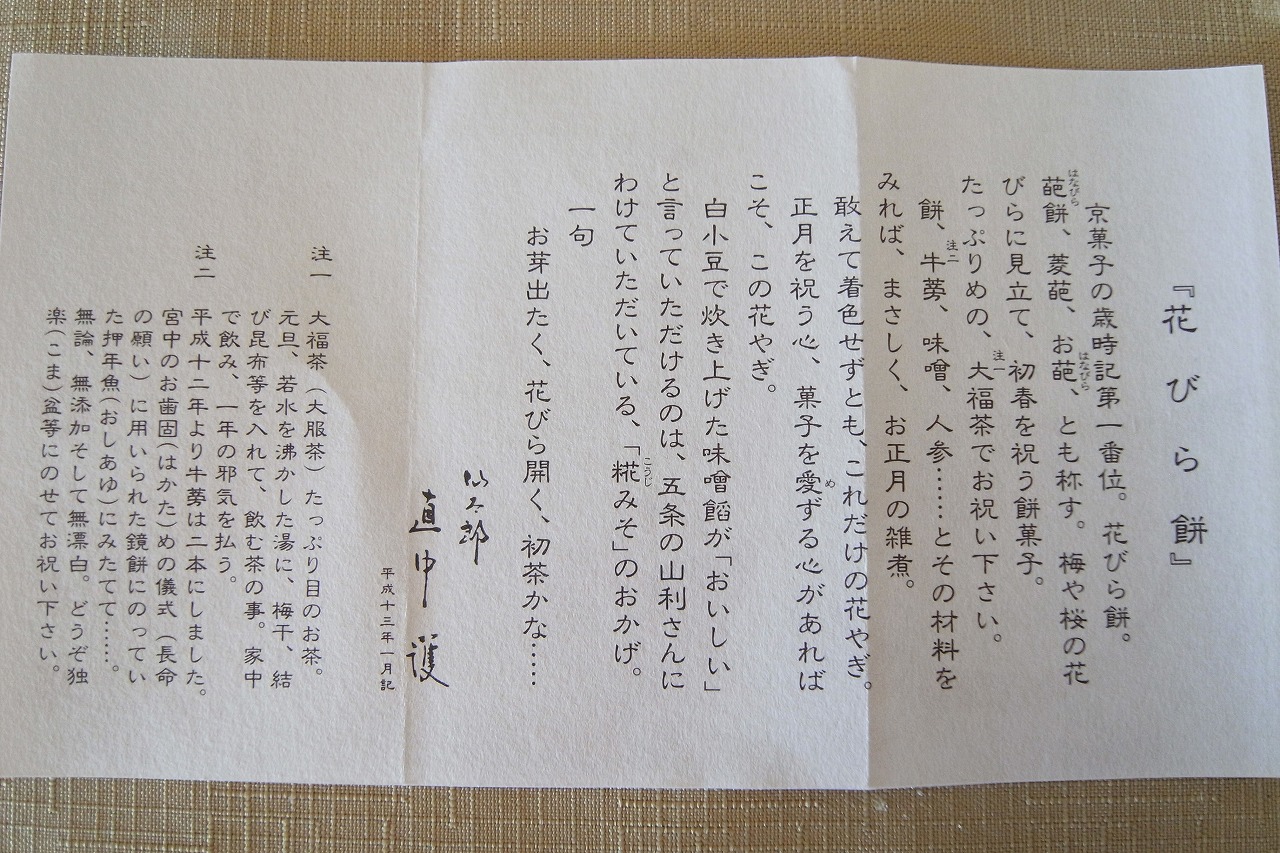 『花びら餅』
京菓子の歳時記第一番位。花びら餅。
葩餅、菱葩、お葩、とも称す。梅や桜の花
はなびら
はなびら
びらに見立て、初春を祝う餅菓子。
たっぷりめの、大福茶でお祝い下さい。
注一
餅、牛蒡、味噌、人参……とその材料を
注二
みれば、まさしく、お正月の雑煮。
敢えて着色せずとも、これだけの花やぎ。
正月を祝う心、菓子を愛ずる心があれば
め
こそ、この花やぎ。
白小豆で炊き上げた味噌餡が「おいしい」
と言っていただけるのは、五条の山利さんに
わけていただいている、「糀みそ」のおかげ。
こうじ
一句
お芽出たく、花びら開く、初茶かな……
仙太郎
直中 護
平成十三年一月記
注一 大福茶(大服茶)たっぷり目のお茶。
元旦、若水を沸かした湯に、梅干、結
び昆布等を入れて、飲む茶の事。家中
で飲み、一年の邪気を払う。
注二 平成十二年より牛蒡は二本にしました。
宮中のお歯固(はかた)めの儀式(長命
の願い)に用いられた鏡餅にのってい
た押年魚(おしあゆ)にみたてて……。
無論、無添加そして無漂白。どうぞ独
楽(こま)盆等にのせてお祝い下さい。